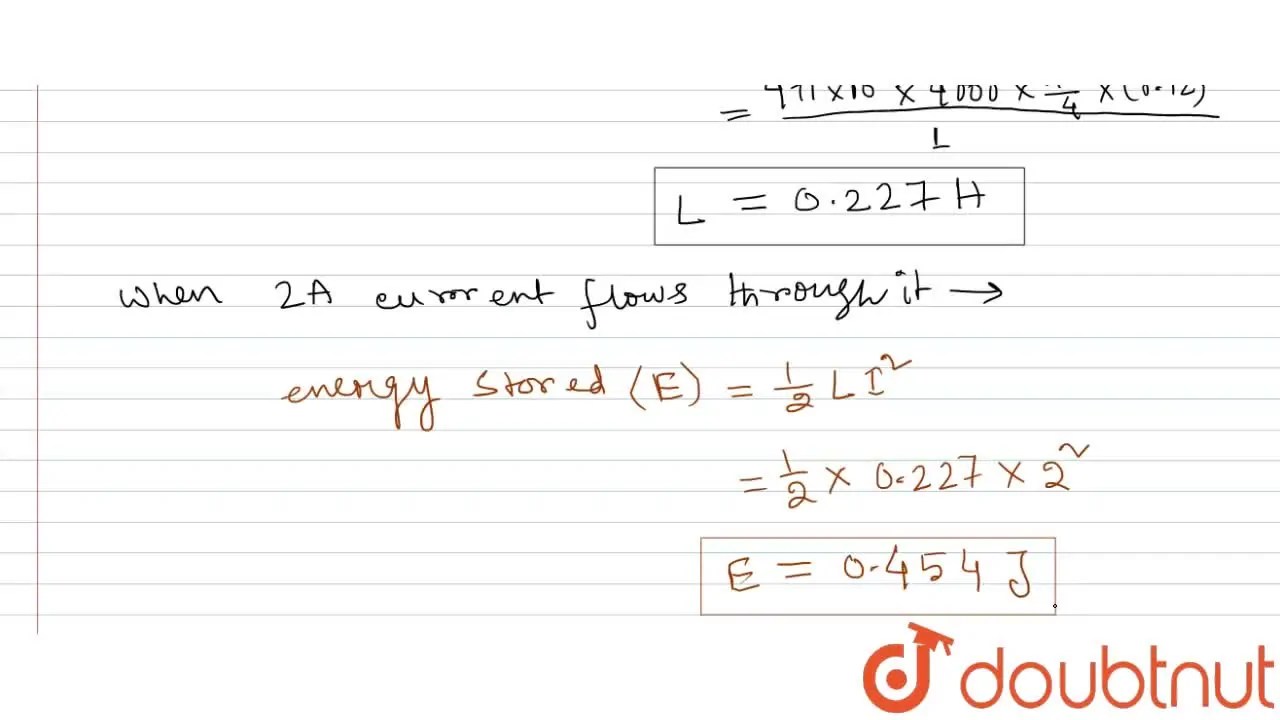 = × 4000 × /4 ×
L
L = 0.227 H
when 2A current flows through it →
energy stored (E) = 1/2 L I²
= 1/2 × 0.227 × 2²
E = 0.454 J
doubtnut